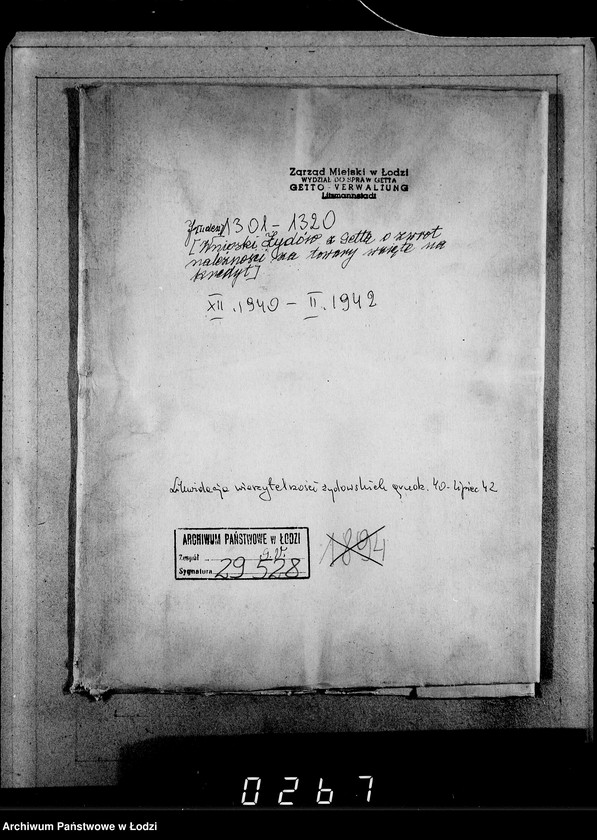 Zarząd Miejski w Łodzi
WYDZIAŁ DO SPRAW GETTA
GETTO-VERWALTUNG
Litzmannstadt
Juden 1301-1320
[Wnioski Żydów z getta o zwrot
należności za towary wzięte na
kredyt]
XII.1940 - II.1942
Likwidacja wierzytelności żydowskich 40-lipiec 42
ARCHIWUM PAŃSTWOWE w ŁODZI
Zespół
Sygnatura 29 528
1894
0267
Archiwum Państwowe w Łodzi